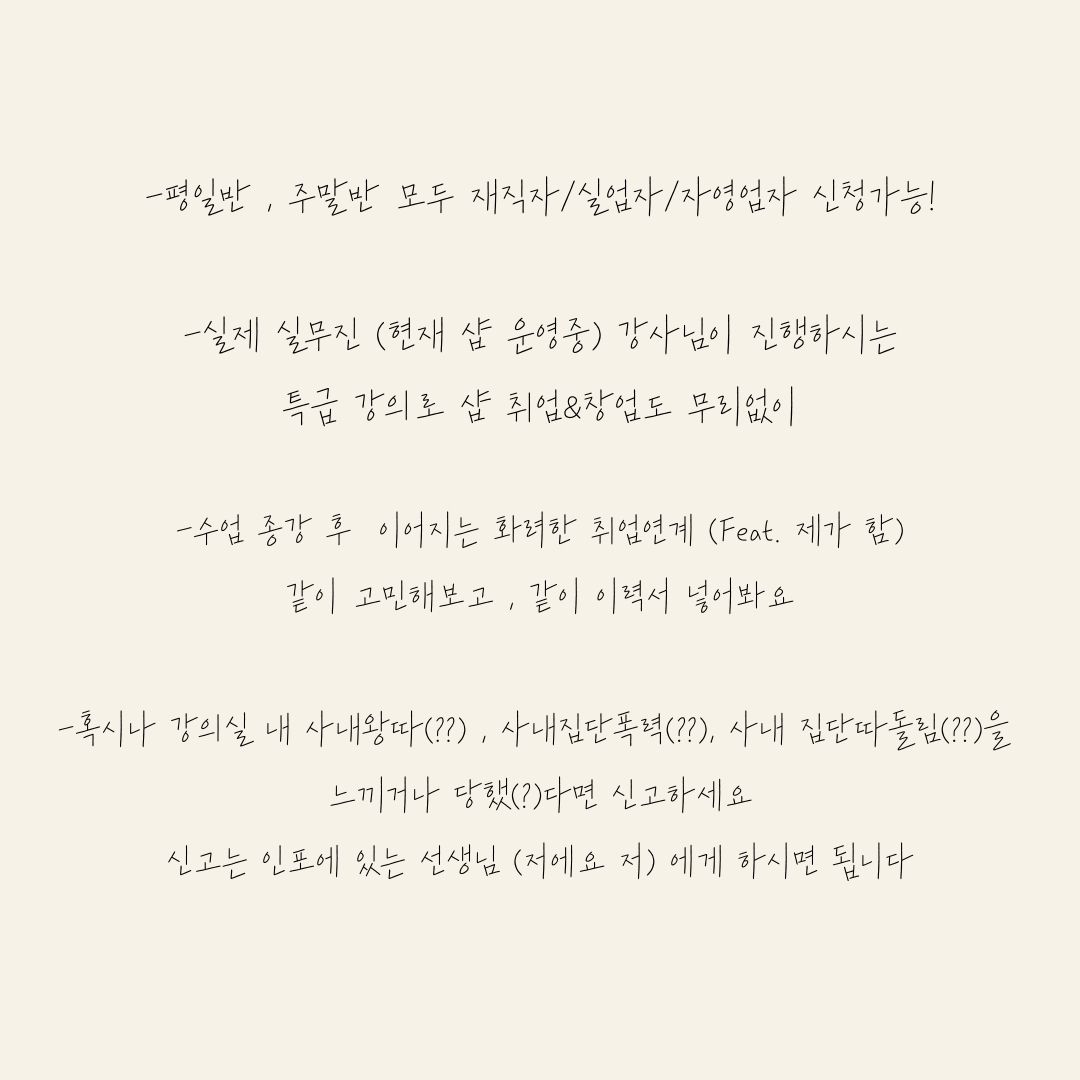 -평일반 , 주말반 모두 재직자/실업자/자영업자 신청가능!
-실제 실무진 (현재 샵 운영중) 강사님이 진행하시는
특급 강의로 샵 취업&창업도 무리없이
-수업 종강 후 이어지는 화려한 취업연계 (Feat. 제가 함)
같이 고민해보고 , 같이 이력서 넣어봐요
-혹시나 강의실 내 사내왕따(??) , 사내집단폭력(??), 사내 집단따돌림(??)을
느끼거나 당했(?)다면 신고하세요
신고는 인포에 있는 선생님 (저에요 저) 에게 하시면 됩니다